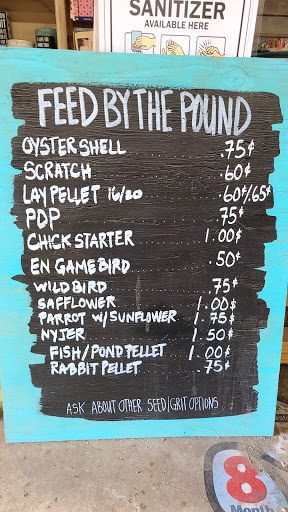 SANITIZER
AVAILABLE HERE
FEED BY THE POUND
OYSTER SHELL .75¢
SCRATCH .60¢
LAY PELLET 16/20 .60¢/.65¢
PDP .75¢
CHICK STARTER 1.00¢
EN GAME BIRD .50¢
WILD BIRD .75¢
SAFFLOWER 1.00$
PARROT W/SUNFLOWER 1.75¢
NYJER 1.50¢
FISH/POND PELLET 1.00¢
RABBIT PELLET .75¢
ASK ABOUT OTHER SEED/GRIT OPTIONS
8
Month